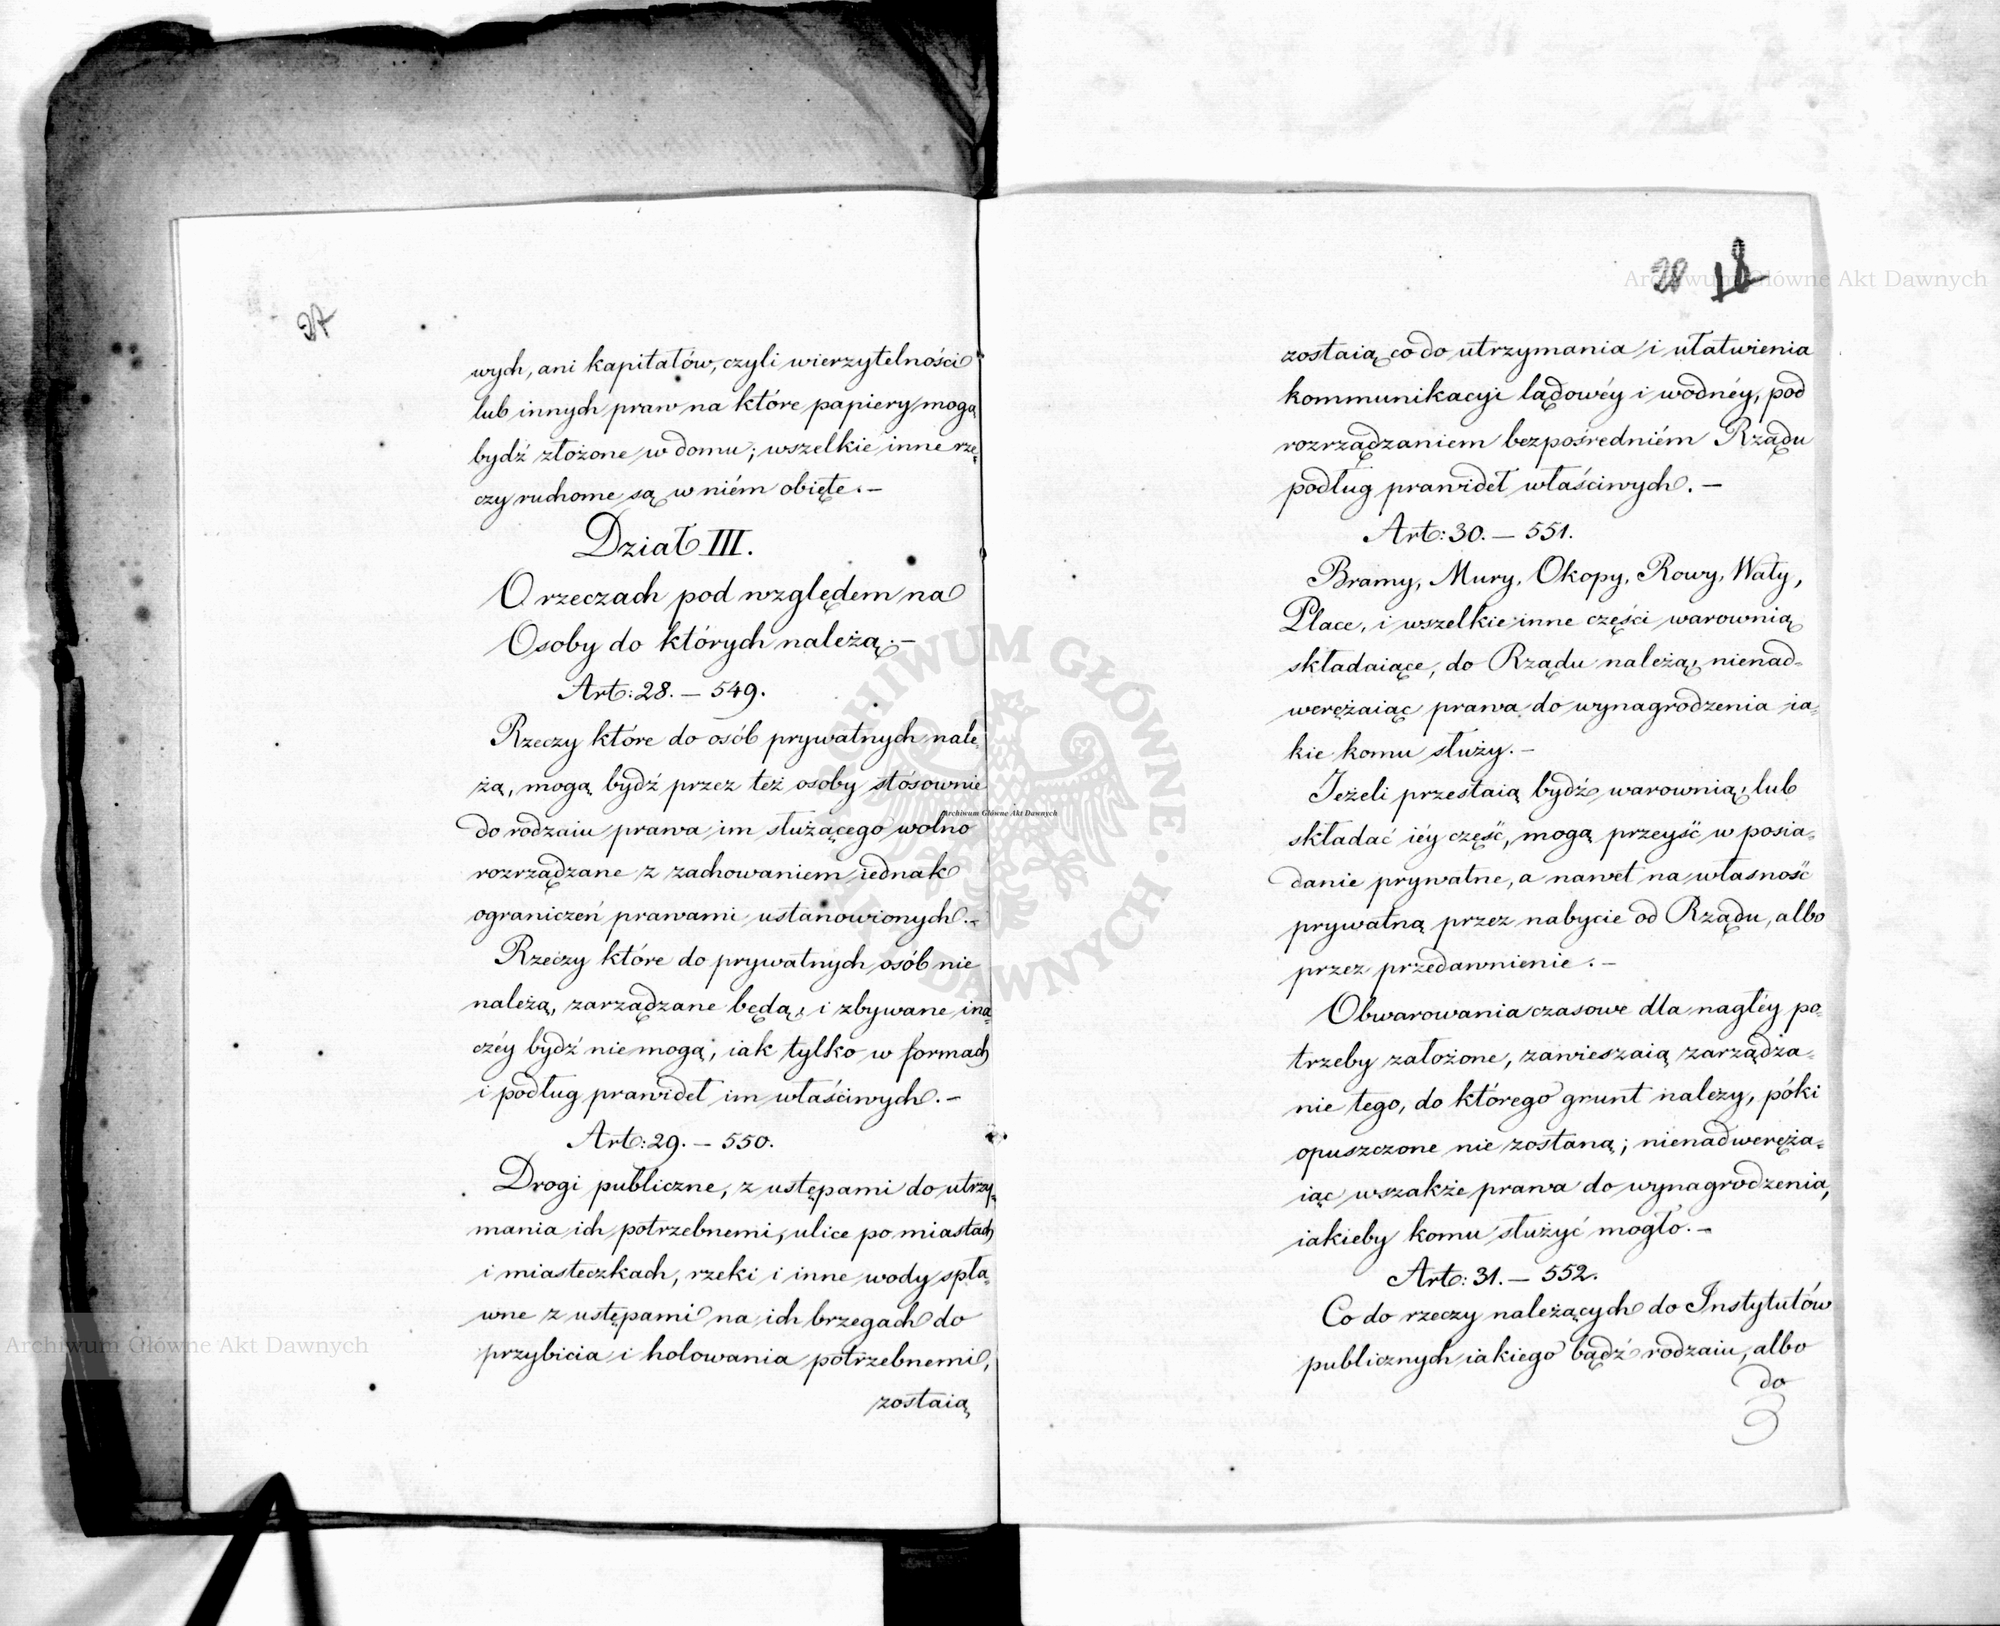 27
wych, ani kapitałów, czyli wierzytelności
lub innych praw na które papiery mogą
bydź złożone w domu; wszelkie inne rze=
czy ruchome są w niém obięte. —
Dział III.
O rzeczach pod względem na
Osoby do których należą. —
Art: 28. — 549.
Rzeczy które do osób prywatnych nale=
żą, mogą bydź przez też osoby stósownie
do rodzaiu prawa im służącego wolno
rozrządzane z zachowaniem iednak
ograniczeń prawami ustanowionych. —
Rzeczy które do prywatnych osób nie
należą, zarządzane będą, i zbywane ina=
czéy bydź nie mogą, iak tylko w formach
i podług prawideł im właściwych. —
Art: 29. — 550.
Drogi publiczne, z ustępami do utrzy=
mania ich potrzebnemi, ulice po miastach
i miasteczkach, rzeki i inne wody spła=
wne z ustępami na ich brzegach do
przybicia i holowania potrzebnemi,
zostaią
28 18
zostaią co do utrzymania i ułatwienia
kommunikacyi lądowéy i wodnéy, pod
rozrządzaniem bezpośredniém Rządu
podług prawideł właściwych. —
Art: 30. — 551.
Bramy, Mury, Okopy, Rowy, Wały,
Place, i wszelkie inne części warownią
składaiące, do Rządu należą, nienad=
werężaiąc prawa do wynagrodzenia ia=
kie komu służy. —
Jeżeli przestaią bydź warownią, lub
składać iéy część, mogą przeyść w posia=
danie prywatne, a nawet na własność
prywatną przez nabycie od Rządu, albo
przez przedawnienie. —
Obwarowania czasowe dla nagłéy po=
trzeby założone, zawieszaią zarządza=
nie tego, do którego grunt należy, póki
opuszczone nie zostaną; nienadweręża=
iąc wszakże prawa do wynagrodzenia,
iakieby komu służyć mogło. —
Art: 31. — 552.
Co do rzeczy należących do Instytutów
publicznych iakiego bądź rodzaiu, albo
do
Archiwum Główne Akt Dawnych
Archiwum Główne Akt Dawnych
Archiwum Główne Akt Dawnych
ARCHIWUM GŁÓWNE AKT DAWNYCH